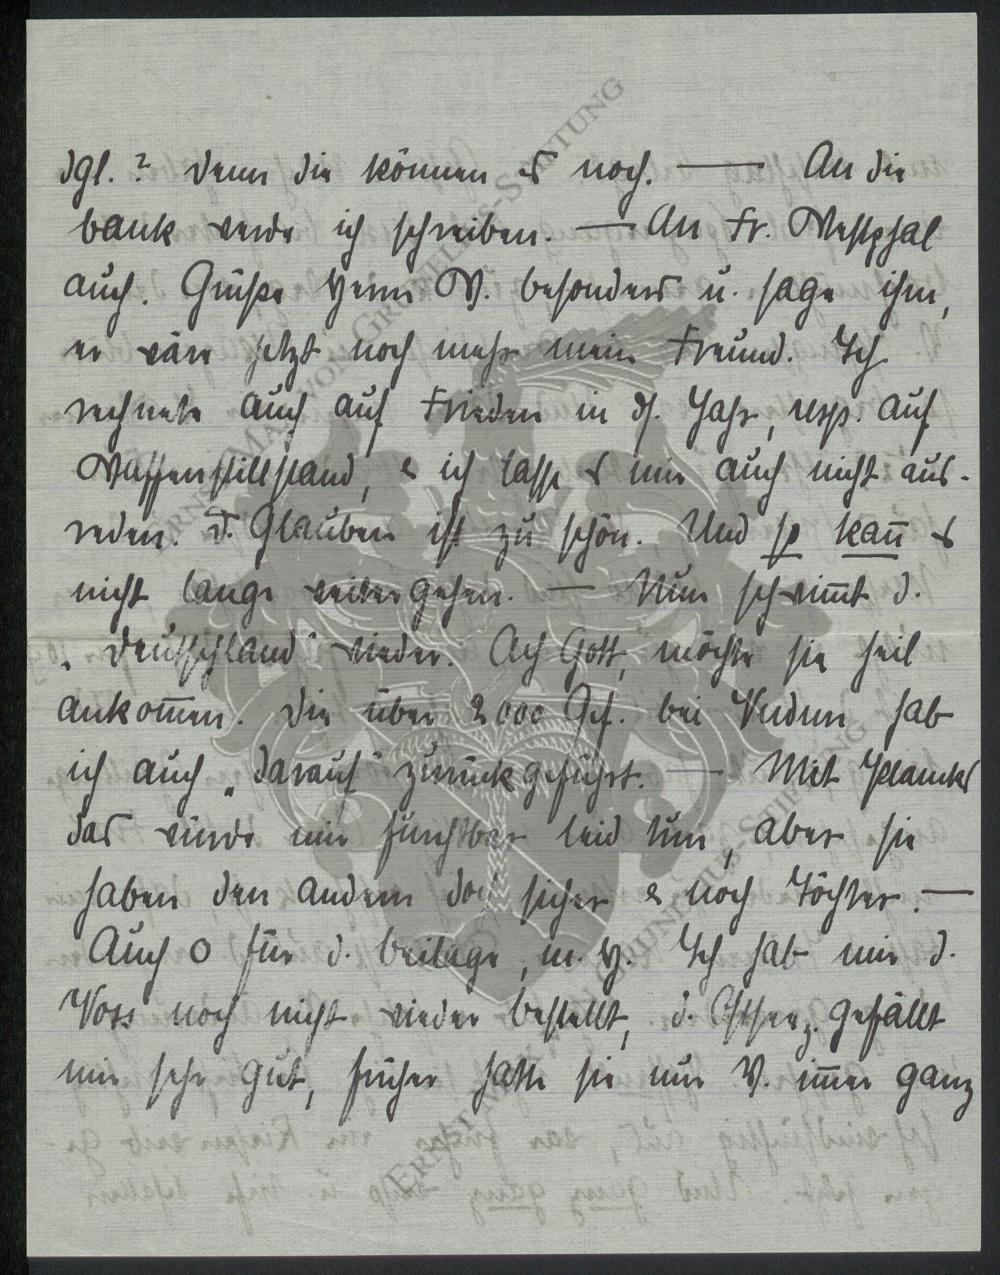 dgl.? Denn die können es noch. — An die
bank werde ich schreiben. — An Fr. Westphal
auch. Grüße Herrn W. besonders u. sage ihm,
er wäre jetzt noch mehr mein Freund. Ich
rechnete auch auf Frieden in ds. Jahr, resp. auf
Waffenstillstand, & ich lasse es mir auch nicht aus-
reden. D. Glauben ist zu schön. Und so kan̅ es
nicht lange weitergehen. — Nun schwim̅t d.
„Deutschland" wieder. Ach Gott, möchte sie heil
ankom̅en. Die über 2000 Gef. bei Verdun hab
ich auch „darauf" zurückgeführt. — Mit
das würde mir furchtbar leid tun, aber sie
haben den andern doch sicher & noch Töchter. —
Auch O für d. beilage, m. H. Ich hab mir d.
Voss noch nicht wieder bestellt, d. Ostseez. gefällt
mir sehr gut, früher hatte sie nur V. im̅er ganz
ERNST-MARWOLD-GRÖFELIUS-STIFTUNG